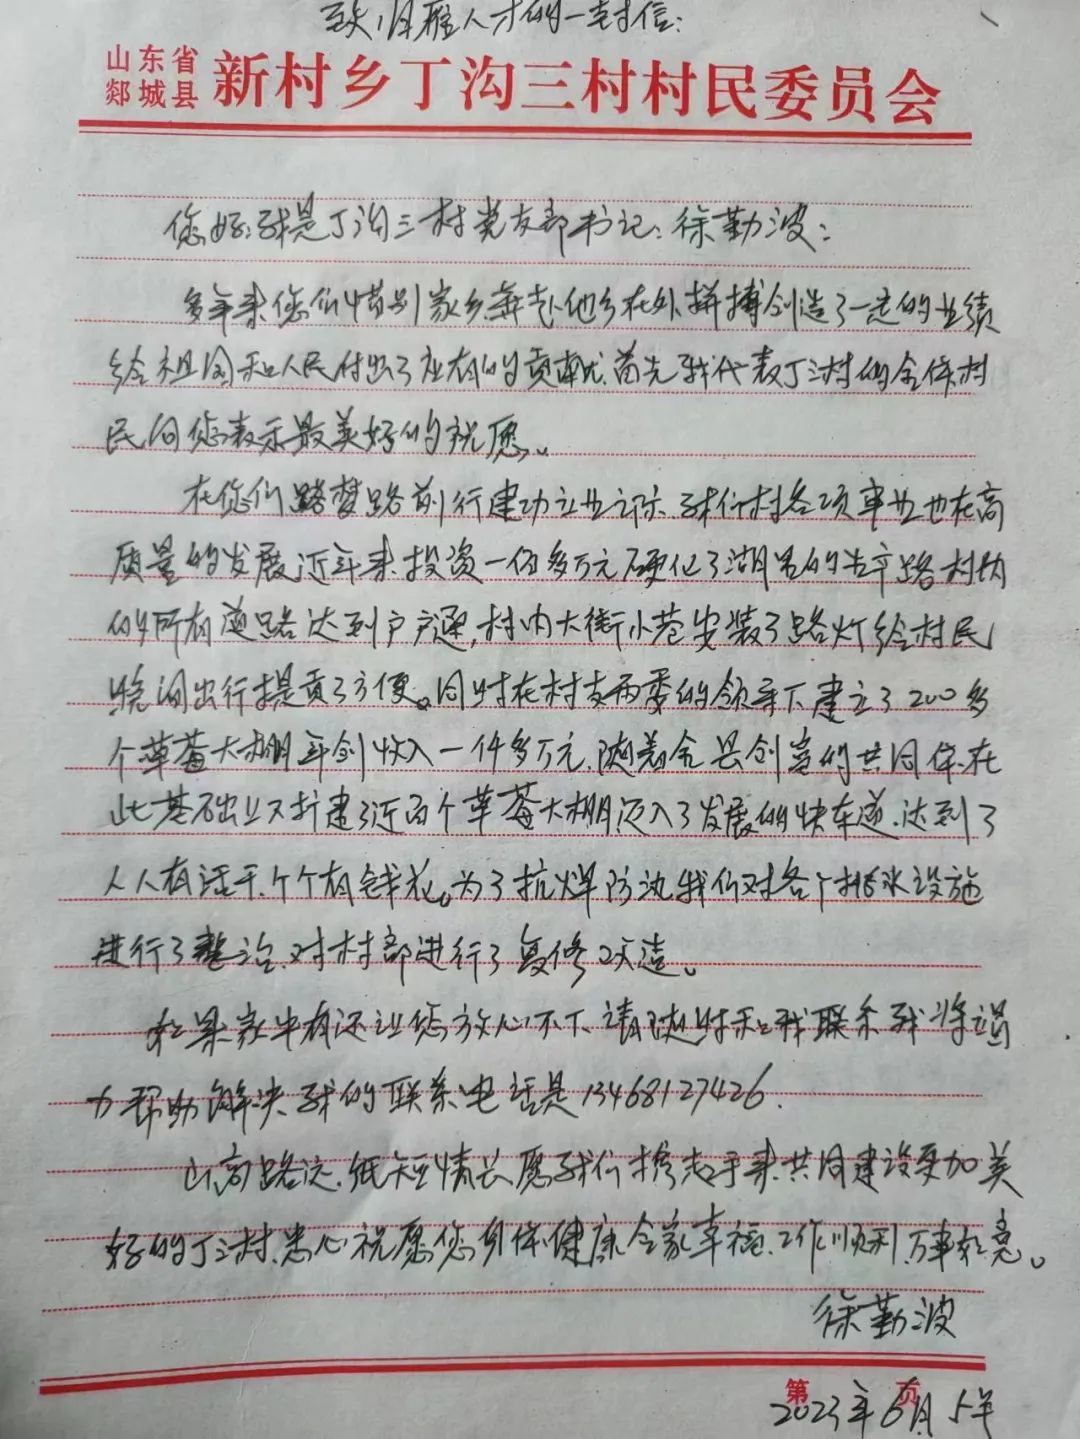 致归雁人才的一封信:
山东省
郯城县
新村乡丁沟三村村民委员会
您好:我是丁沟三村党支部书记:徐勤波:
多年来您们惜别家乡,奔赴他乡在外拼搏创造了一定的业绩
给祖国和人民付出了应有的贡献.首先我代表丁三村的全体村
民向您表示最美好的祝愿。
在您们踏梦路前行建功立业之际.我们村各项事业也在高
质量的发展近年来投资一佰多万元硬化了湖里的生产路村内
的所有道路达到户户通,村内大街小巷安装了路灯给村民
晚间出行提贡了方便。同时在村支两委的领导下建立了200多
个草莓大棚年创收入一仟多万元.随着全县创富的共同体在
此基础上又扩建了近百个草莓大棚迈入了发展的快车道.达到了
人人有活干.个个有钱花。为了抗旱防汛我们对各个排水设施
进行了整治.对村部进行了复修改造。
如果家中有还让您放心不下.请随时和我联系我将竭
力帮助解决我的联系电话是13468127426.
山高路远.纸短情长愿我们携起手来共同建设更加美
好的丁三村.忠心祝愿您身体健康全家幸福.工作顺利.万事如意。
徐勤波
第 页
2023年6月5年